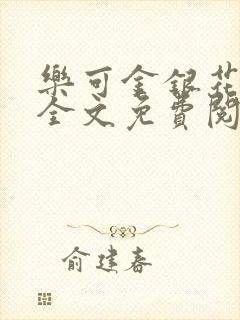 樂可金銀花
全文免費閱
俞建春